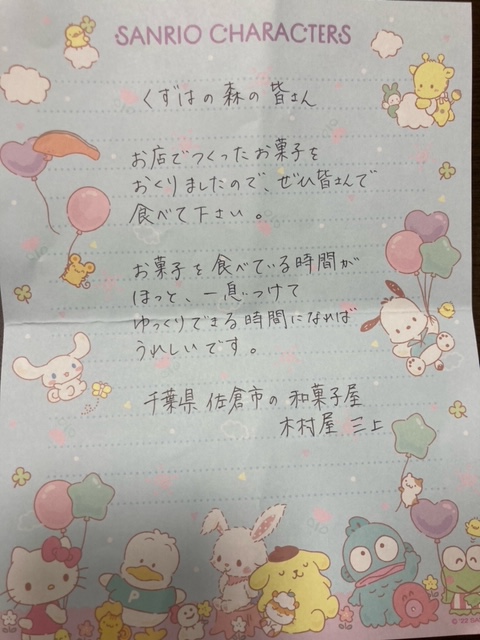 SANRIO CHARACTERS
くずはの森の皆さん
お店でつくったお菓子を
おくりましたので、ぜひ皆さんで
食べて下さい。
お菓子を食べている時間が
ほっと、一息つけて
ゆっくりできる時間になれば
うれしいです。
千葉県佐倉市の和菓子屋
木村屋 三上
P